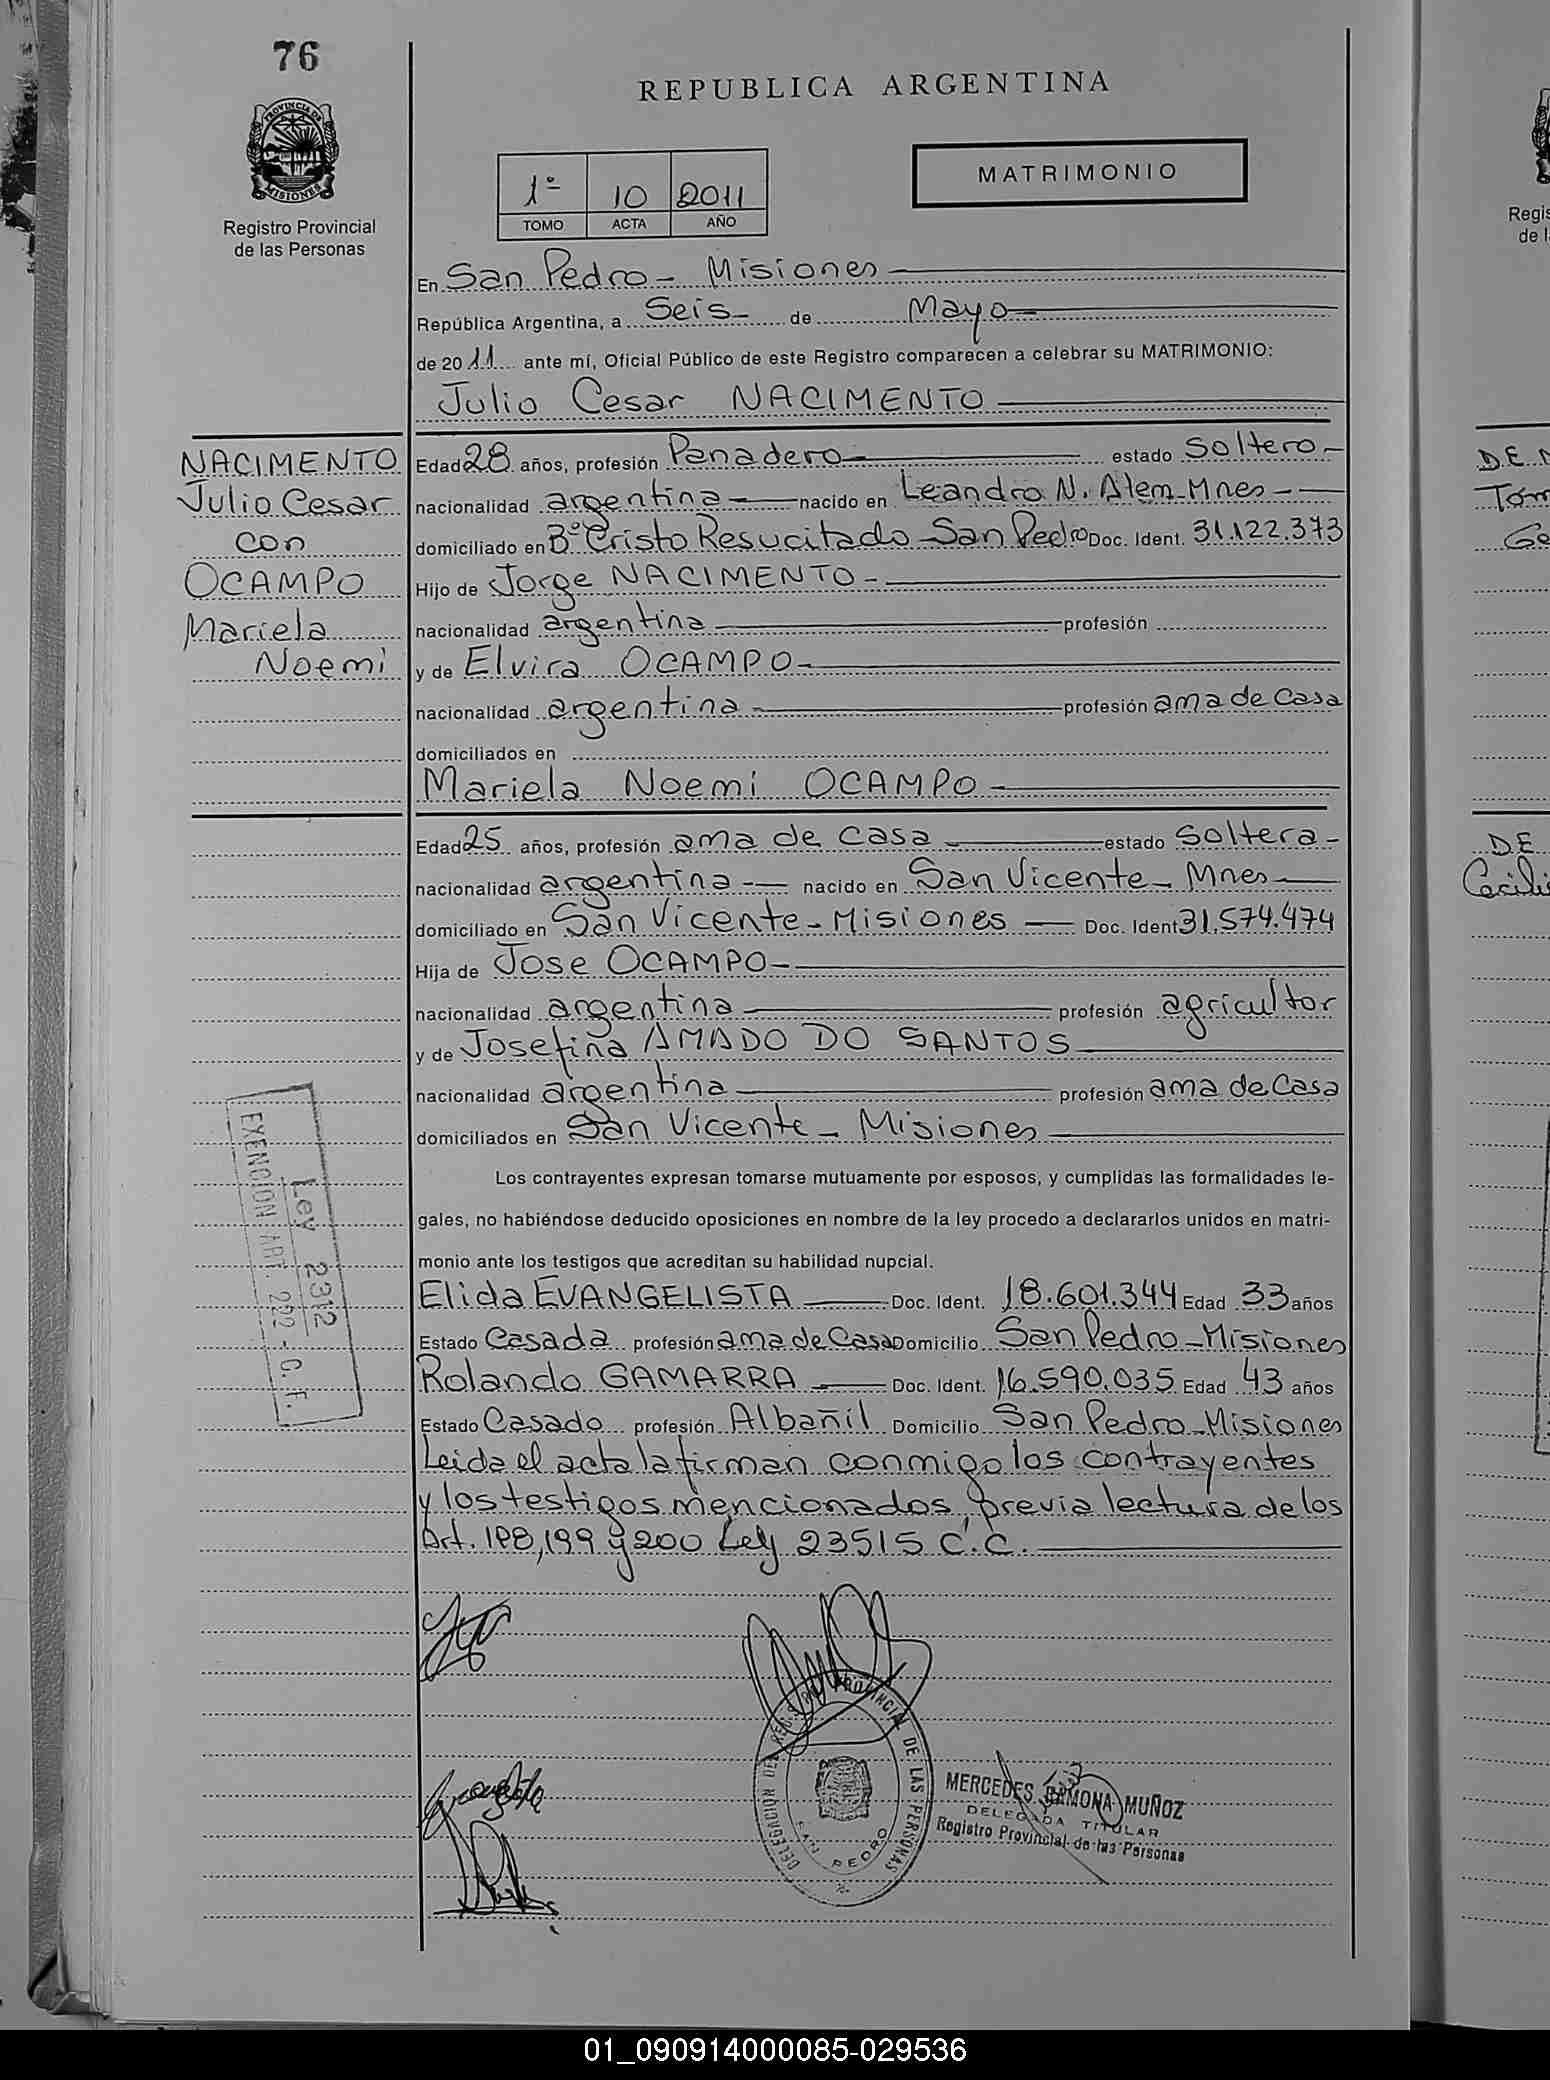 76
REPUBLICA ARGENTINA
PROVINCIA DE
MISIONES
Registro Provincial
de las Personas
1º 10 2011
TOMO ACTA AÑO
MATRIMONIO
En San Pedro - Misiones
República Argentina, a Seis - de Mayo
de 2011 ante mí, Oficial Público de este Registro comparecen a celebrar su MATRIMONIO:
Julio Cesar NACIMENTO
NACIMENTO
Julio Cesar
con
OCAMPO
Mariela
Noemi
Edad 28 años, profesión Panadero estado Soltero -
nacionalidad argentina nacido en Leandro N. Alem - Mnes -
domiciliado en Bº Cristo Resucitado San Pedro Doc. Ident. 31.122.373
Hijo de Jorge NACIMENTO -
nacionalidad argentina profesión
y de Elvira OCAMPO -
nacionalidad argentina profesión ama de casa
domiciliados en
Mariela Noemi OCAMPO
Edad 25 años, profesión ama de casa estado Soltera -
nacionalidad argentina nacido en San Vicente - Mnes
domiciliado en San Vicente - Misiones Doc. Ident 31.574.474
Hija de Jose OCAMPO -
nacionalidad argentina profesión agricultor
y de Josefina AMADO DO SANTOS
nacionalidad argentina profesión ama de casa
domiciliados en San Vicente - Misiones
Los contrayentes expresan tomarse mutuamente por esposos, y cumplidas las formalidades le-
gales, no habiéndose deducido oposiciones en nombre de la ley procedo a declararlos unidos en matri-
monio ante los testigos que acreditan su habilidad nupcial.
Elida EVANGELISTA Doc. Ident. 18.601.344 Edad 33 años
Estado Casada profesión ama de Casa Domicilio San Pedro - Misiones
Rolando GAMARRA Doc. Ident. 16.590.035 Edad 43 años
Estado Casado profesión Albañil Domicilio San Pedro - Misiones
Leida el acta la firman conmigo los contrayentes
y los testigos mencionados, previa lectura de los
Art. 198, 199 y 200 Ley 23515 C.C.
Ley 2312
EXENCION ART. 222 - C. F.
DELEGACION DEL REG. PROVINCIAL DE LAS PERSONAS
SAN PEDRO
MERCEDES RAMONA MUÑOZ
DELEGADA TITULAR
Registro Provincial de las Personas
Regis
de l
DE N
Tom
Ge
DE
Cecili
01_090914000085-029536